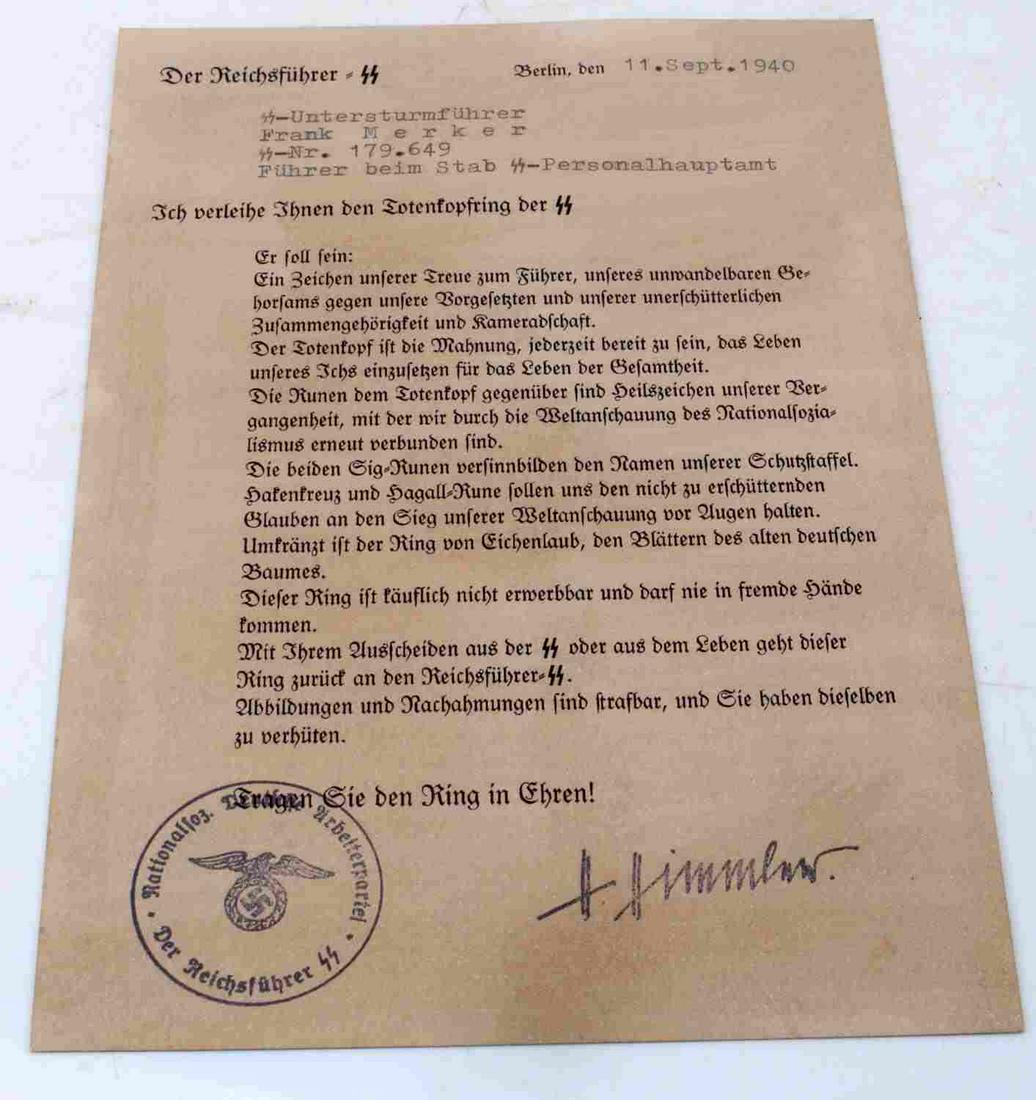 Der Reichsführer-SS
Berlin, den 11.Sept.1940
SS-Untersturmführer
Frank M e r k e r
SS-Nr. 179.649
Führer beim Stab SS-Personalhauptamt
Ich verleihe Ihnen den Totenkopfring der SS
Er soll sein:
Ein Zeichen unserer Treue zum Führer, unseres unwandelbaren Ge-
horsams gegen unsere Vorgesetzten und unserer unerschütterlichen
Zusammengehörigkeit und Kameradschaft.
Der Totenkopf ist die Mahnung, jederzeit bereit zu sein, das Leben
unseres Ichs einzusetzen für das Leben der Gesamtheit.
Die Runen dem Totenkopf gegenüber sind Heilszeichen unserer Ver-
gangenheit, mit der wir durch die Weltanschauung des Nationalsozia-
lismus erneut verbunden sind.
Die beiden Sig-Runen versinnbilden den Namen unserer Schutzstaffel.
Hakenkreuz und Hagall-Rune sollen uns den nicht zu erschütternden
Glauben an den Sieg unserer Weltanschauung vor Augen halten.
Umkränzt ist der Ring von Eichenlaub, den Blättern des alten deutschen
Baumes.
Dieser Ring ist käuflich nicht erwerbbar und darf nie in fremde Hände
kommen.
Mit Ihrem Ausscheiden aus der SS oder aus dem Leben geht dieser
Ring zurück an den Reichsführer-SS.
Abbildungen und Nachahmungen sind strafbar, und Sie haben dieselben
zu verhüten.
Tragen Sie den Ring in Ehren!
H. Himmler.
Nationalsoz. Arbeiterpartei
Der Reichsführer SS